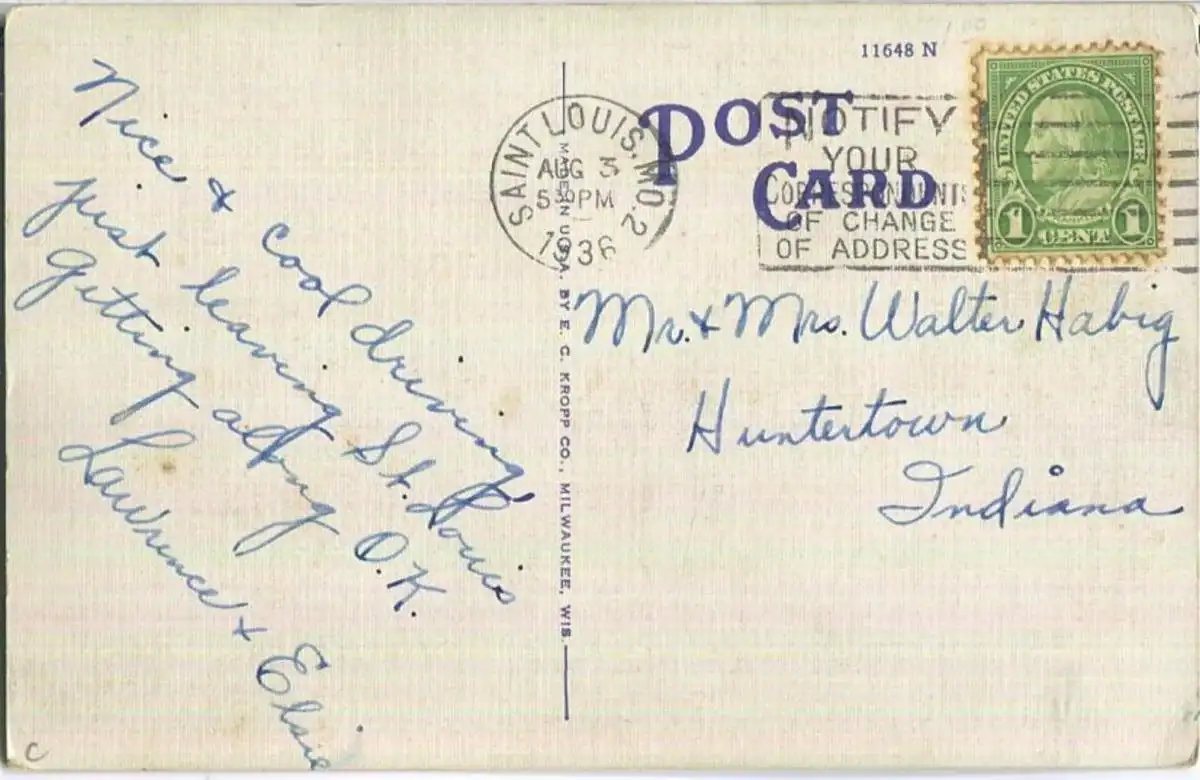 Nice & cool driving,
just leaving St. Louis
Getting along O.K.
Lawrence & Elsie
C
MADE IN U.S.A. BY E. C. KROPP CO., MILWAUKEE, WIS.
11648 N
POST
CARD
SAINT LOUIS, MO. 2
AUG 3
530 PM
1936
NOTIFY
YOUR
CORRESPONDENTS
OF CHANGE
OF ADDRESS
UNITED STATES POSTAGE
1 CENT 1
Mr. & Mrs. Walter Habig
Huntertown
Indiana